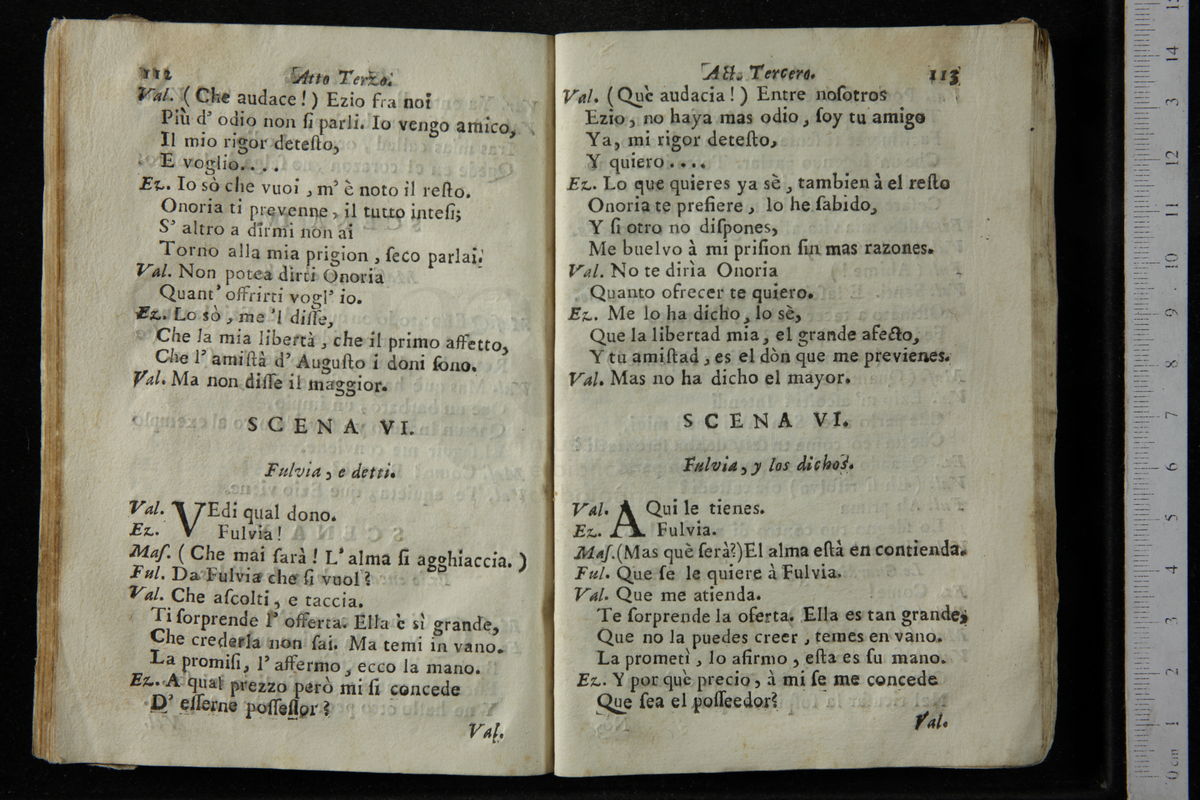 112
Atto Terzo.
Val. (Che audace!) Ezio fra noi
Più d' odio non ſi parli. Io vengo amico,
Il mio rigor deteſto,
E voglio....
Ez. Io sò che vuoi, m' è noto il reſto.
Onoria ti prevenne, il tutto inteſi;
S' altro a dirmi non ai
Torno alla mia prigion, ſeco parlai.
Val. Non potea dirti Onoria
Quant' offrirti vogl' io.
Ez. Lo sò, me 'l diſſe,
Che la mia libertà, che il primo affetto,
Che l' amiſtà d' Auguſto i doni ſono.
Val. Ma non diſſe il maggior.
SCENA VI.
Fulvia, e detti.
Val. VEdi qual dono.
Ez. Fulvia!
Maſ. (Che mai ſarà! L' alma ſi agghiaccia.)
Ful. Da Fulvia che ſi vuol?
Val. Che aſcolti, e taccia.
Ti ſorprende l' offerta. Ella è sì grande,
Che crederla non ſai. Ma temi in vano.
La promiſi, l' affermo, ecco la mano.
Ez. A qual prezzo però mi ſi concede
D' eſſerne poſſeſſor?
Val.
Act. Tercero.
113
Val. (Què audacia!) Entre noſotros
Ezio, no haya mas odio, ſoy tu amigo
Ya, mi rigor deteſto,
Y quiero....
Ez. Lo que quieres ya sè, tambien à el reſto
Onoria te prefiere, lo he ſabido,
Y ſi otro no diſpones,
Me buelvo à mi priſion ſin mas razones.
Val. No te dirìa Onoria
Quanto ofrecer te quiero.
Ez. Me lo ha dicho, lo sè,
Que la libertad mia, el grande afecto,
Y tu amiſtad, es el dòn que me previenes.
Val. Mas no ha dicho el mayor.
SCENA VI.
Fulvia, y los dichos.
Val. AQui le tienes.
Ez. Fulvia.
Maſ.(Mas què ſerà?)El alma eſtà en contienda.
Ful. Que ſe le quiere à Fulvia.
Val. Que me atienda.
Te ſorprende la oferta. Ella es tan grande,
Que no la puedes creer, temes en vano.
La prometì, lo afirmo, eſta es ſu mano.
Ez. Y por què precio, à mi ſe me concede
Que ſea el poſſeedor?
Val.
0 cm 1 2 3 4 5 6 7 8 9 10 11 12 3 14